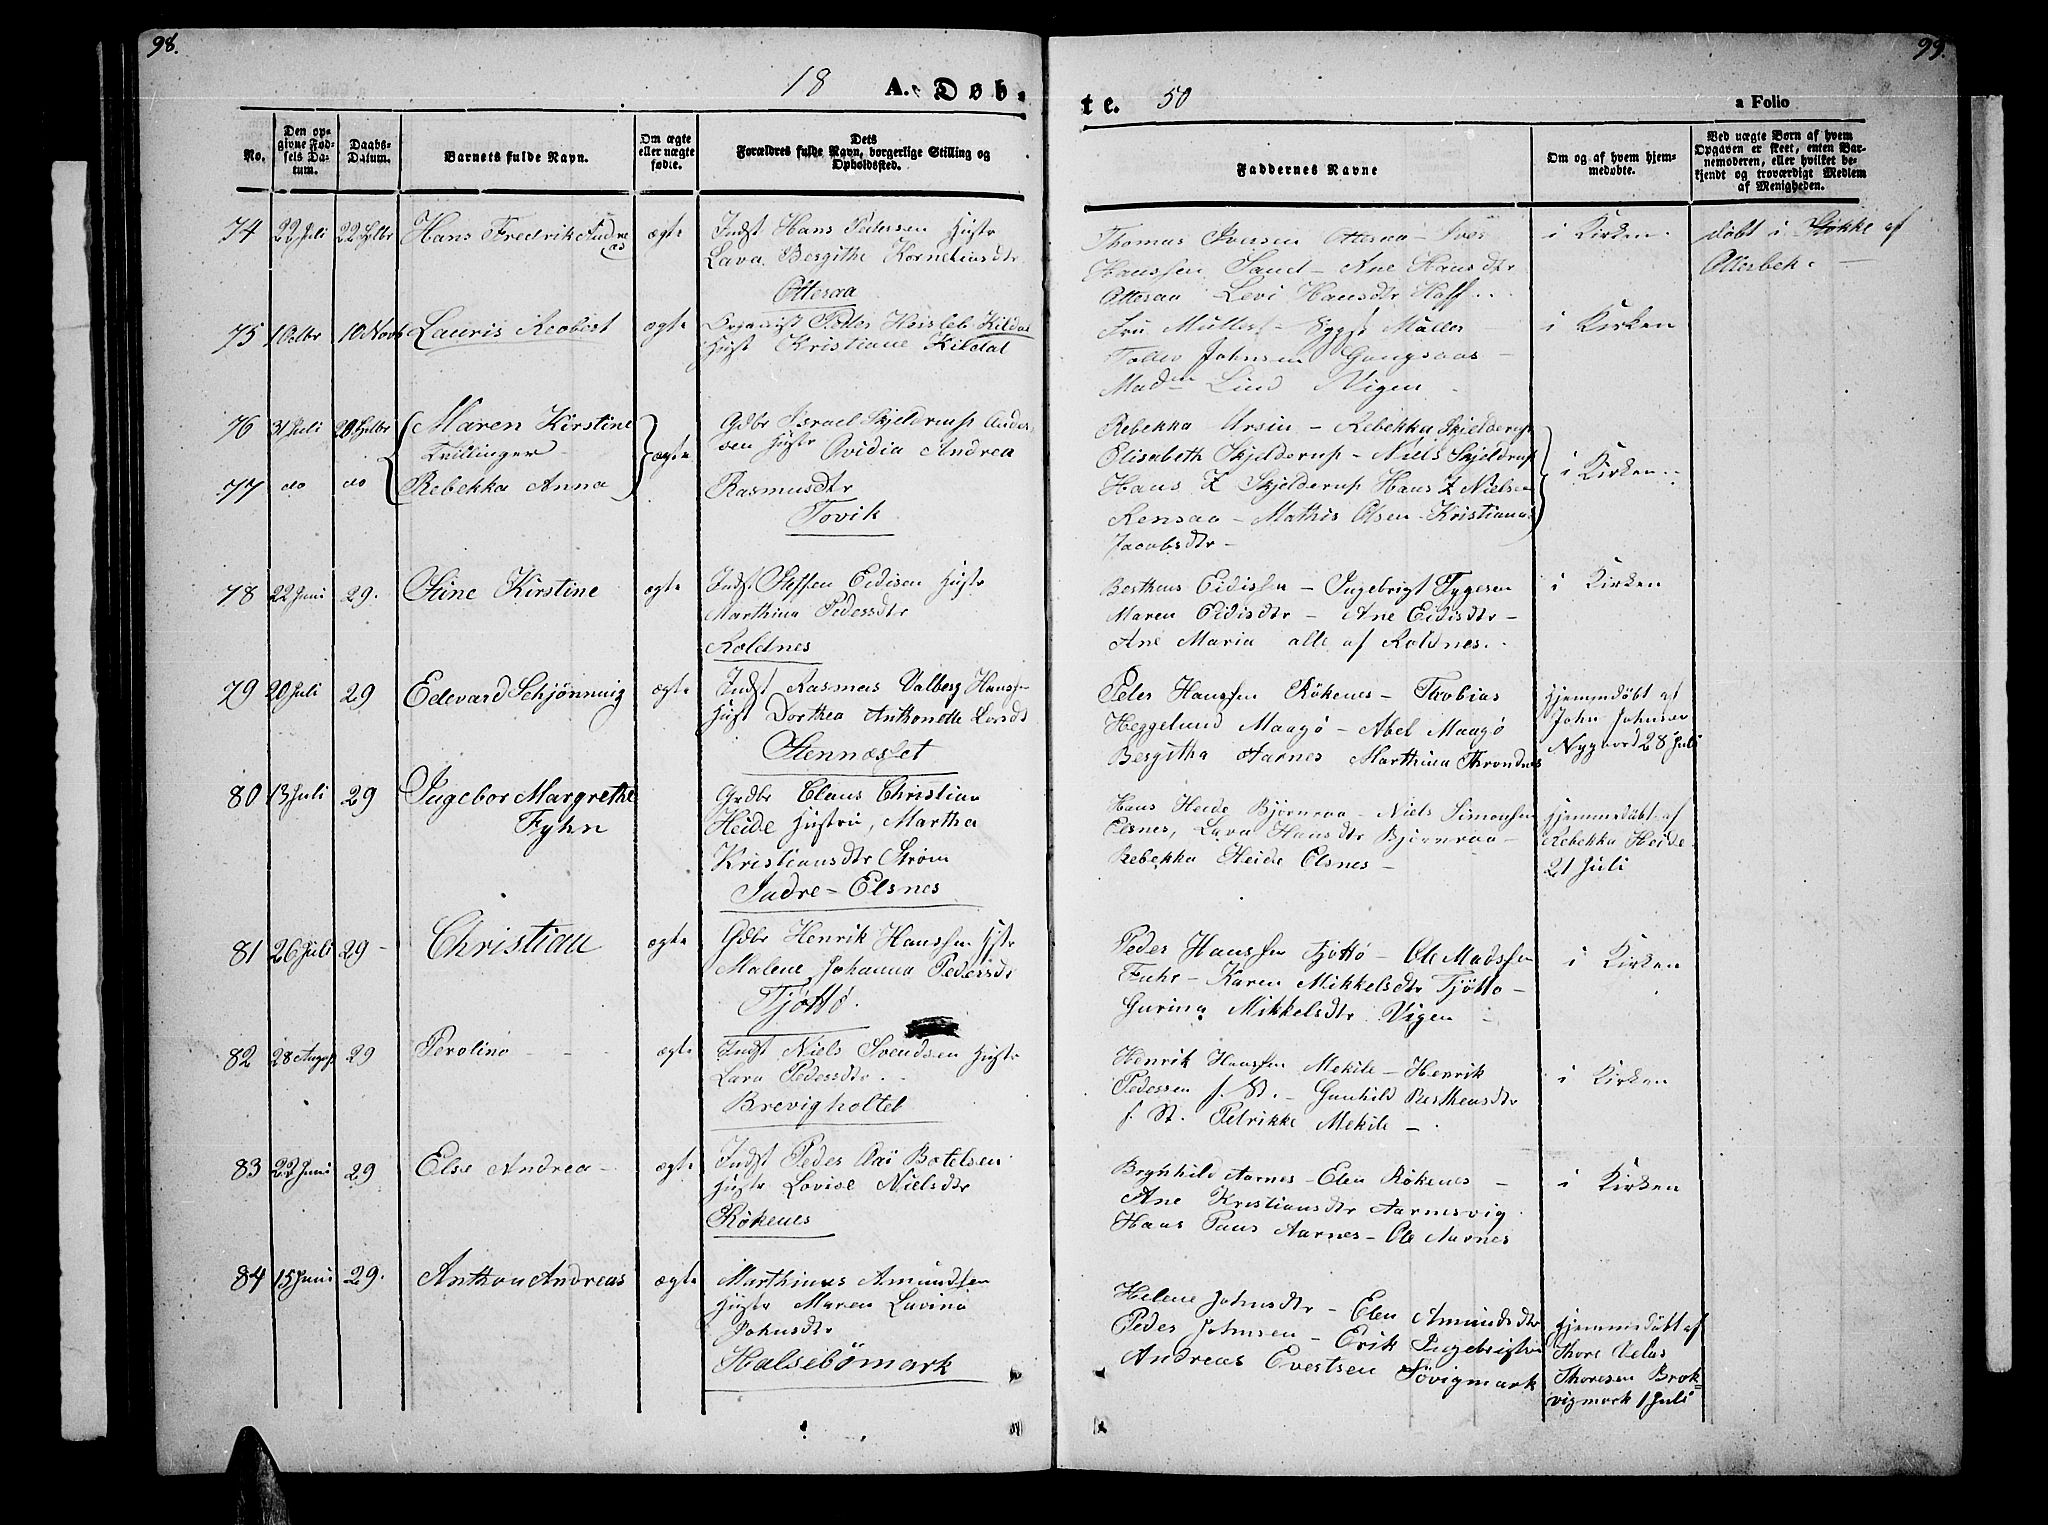 98.
99.
18 A. Døb-
te. 50
a Folio
No.
Den op-
givne Fød-
sels Da-
tum.
Daabs-
Datum.
Barnets fulde Navn.
Om ægte
eller uægte
fødte.
Dets
Forældres fulde Navn, borgerlige Stilling og
Opholdssted.
Faddernes Navne
Om og af hvem hjem-
medøbte.
Ved uægte Børn af hvem
Opgaven er skeet, enten Bar-
nemoderen, eller hvilket be-
kjendt og troværdigt Medlem
af Menigheden.
74 22 Juli 22 Hans Fredrik Andre
as
ægte
Indst Hans Pedersen Hustr
Lava Bergithe Kornelius dtr
Ottesaa
Thomas Iversen Ottesaa - Iver
Hanssen Sand - Ane Hans dtr
Ottesaa Levi Hansdtr Hoff
i Kirken.
døbt i Stokke af
Otterbek.
75 10 Novb Lauris Roobert
ægte
Organist Peder Kildal
Hust Kristiane Kildal
Fru Müller - Müller
Tollev Johnsen Gangsaas -
Madm Lind Vigen
i Kirken
76 31 Juli 28 Maren Kirstine
Tvillinger
77 do do Rebekka Anna
ægte
Gdbr Israel Skjelderup Ander-
sen Hustr Ovidia Andrea
Rasmusdtr
Tovik
Rebekka Ursin - Rebekka Skjelderup
Elisabeth Skjelderup - Niels Skjeldrup
Hans Z Skjelderup Hans Z Nielsen
Rensaa - Mathis Olsen - Kristiana
Jacobsdtr -
i Kirken
78 22 Juni 29. Stine Kirstine
ægte
Indst Steffen Eidisen Hustr
Marthina Pedersdtr
Roldnes
Bertheus Eidissen - Ingebrigt Tygesen
Maren Eidisdtr - Ane Eidisdtr -
Ane Maria alle af Roldnes.
i Kirken
79 20 Juli 29 Edevard Schjønning
ægte
Indst Rasmus Valberg Hanssen
Hust Dorthea Anthonette Larsdt
Stennæsset
Peter Hanssen Rökenes - Thobias
Heggelund Maagø - Abel Maagø
Bergitha Aarnes Marthina Throndnes
Hjemmdøbt af
John Johnsen
Nygaard 28 Juli
80 13 Juli 29 Ingebor Margrethe
Fyhn
Grdbr Claus Christian
Heide Hustru, Martha
Kristiansdtr Strøm
Indre - Elsnes
Hans Heide Bjørnraa - Niels Simonsen
Elsnes, Lava Hansdtr Bjørnraa -
Rebekka Heide Elsnes -
Hjemmedøbt af
Rebekka Heide
21 Juli
81 26 Juli 29 - Christian
ægte
Gdbr Henrik Hanssen Hstr
Malene Johanna Pedersdt
Tjøttø.
Peder Hanssen Tjøttø - Ole Madssen
Fuhr - Karen Mikkelsdtr Tjøtto -
Gurina Mikkelsdtr Vigen -
i Kirken
82 28 August 29 Peroline
ægte
Indst Niels Svendsen Hustr
Lava Pedersdtr.
Brevigholtel
Henrik Hanssen Mekile - Henrik
Pedersen f. St. - Gunhild Bertheusdtr
f. St. Petrikke Mekile -
i Kirken
83 22 Juni 29 Else Andrea -
ægte
Indst Peder Botelsen
Hustr Lovise Nielsdtr
Rökenes
Brynhild Aarnes - Elen Rökenes -
Ane Kristiansdtr Aarnesvig
Hans Paus Aarnes - Ole Aarnes
i Kirken
84 15 Juni 29. Anthon Andreas
ægte
Marthinus Amundsen
Hustr Maren Lavina
Johnsdtr
Halsebømark
Helene Johnsdtr - Elen Amundsdtr
Peder Johnsen - Erik Ingebrigtsn
Andreas Evertsen Søvigmark
Hjemmedøbt af
Thore Velas
Thoresen Brok-
vigmark 1 Juli